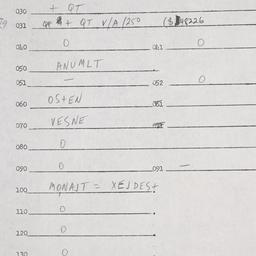 030 + QT
031 + QT V/A /250 48226
040 0 041 0
050 ANUMLT
051 — 052 0
060 OSTEN
070 VESNE
080 0
090 0 091 —
100 MONAJT = XEJDEST
110 0
120 0
130 0